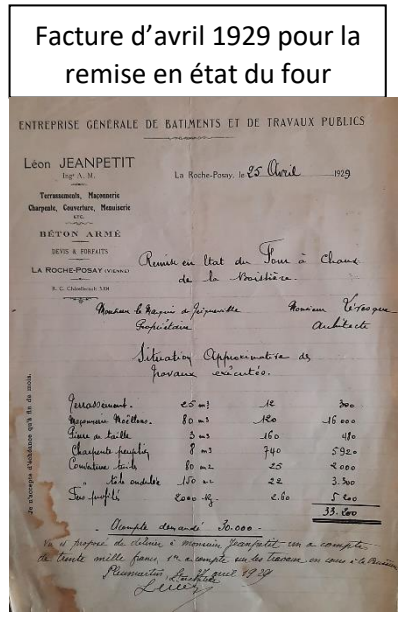 Facture d’avril 1929 pour la
remise en état du four
ENTREPRISE GÉNÉRALE DE BATIMENTS ET DE TRAVAUX PUBLICS
Léon JEANPETIT
Ingr A. M.
La Roche-Posay, le 25 Avril 1929
Terrassements, Maçonnerie
Charpente, Couverture, Menuiserie
ETC.
BÉTON ARMÉ
DEVIS & FORFAITS
LA ROCHE-POSAY (VIENNE)
R. C. Châtellerault
Remise en Etat du Four à Chaux
de la
Monsieur le Marquis de
Monsieur
Propriétaire
Architecte
Situation Approximative des
travaux exécutés.
Terrassement. 25 m3 12 300
Maçonnerie Moëllons. 80 m3 16 000
Pierre de taille 3 m3 160 480
Charpente peuplier 8 m3 740 5920
Couverture tuile 80 m2 25 2 000
" tôle ondulée 150 m2 22 3.300
Fers profilés 2000 Kg 2.60 5 200
33.200
Acompte demandé 30.000 -
Vu et proposé de délivrer à monsieur Jeanpetit un acompte
de trente mille francs, en acompte sur les travaux en cours à la
Pleumartin, le 27 avril 1929
L'architecte
Je n'accepte d'échéance qu'à fin de mois.